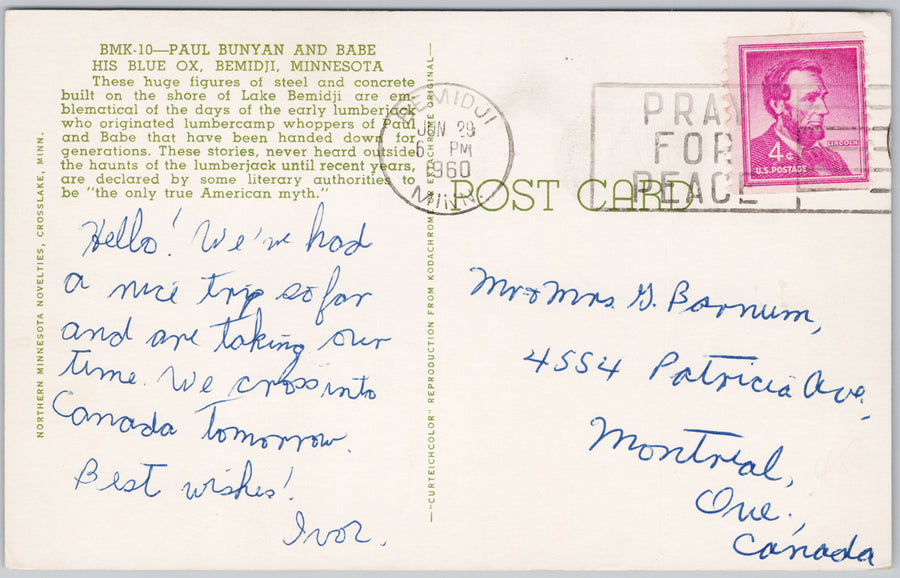 BMK-10—PAUL BUNYAN AND BABE
HIS BLUE OX, BEMIDJI, MINNESOTA
These huge figures of steel and concrete
built on the shore of Lake Bemidji are em-
blematical of the days of the early lumberjack
who originated lumbercamp whoppers of Paul
and Babe that have been handed down for
generations. These stories, never heard outside
the haunts of the lumberjack until recent years,
are declared by some literary authorities to
be "the only true American myth."
NORTHERN MINNESOTA NOVELTIES, CROSSLAKE, MINN.
Hello! We've had
a nice trip so far
and are taking our
time. We cross into
Canada tomorrow.
Best wishes!
Ivor.
—"CURTEICHCOLOR" REPRODUCTION FROM KODACHROME OR EKTACHROME ORIGINAL—
BEMIDJI
JUN 29
6 PM
1960
MINN.
PRAY
FOR
PEACE
4¢
LINCOLN
U.S. POSTAGE
POST CARD
Mr & Mrs. G. Barnum,
4554 Patricia Ave.,
Montreal,
Que.,
Canada